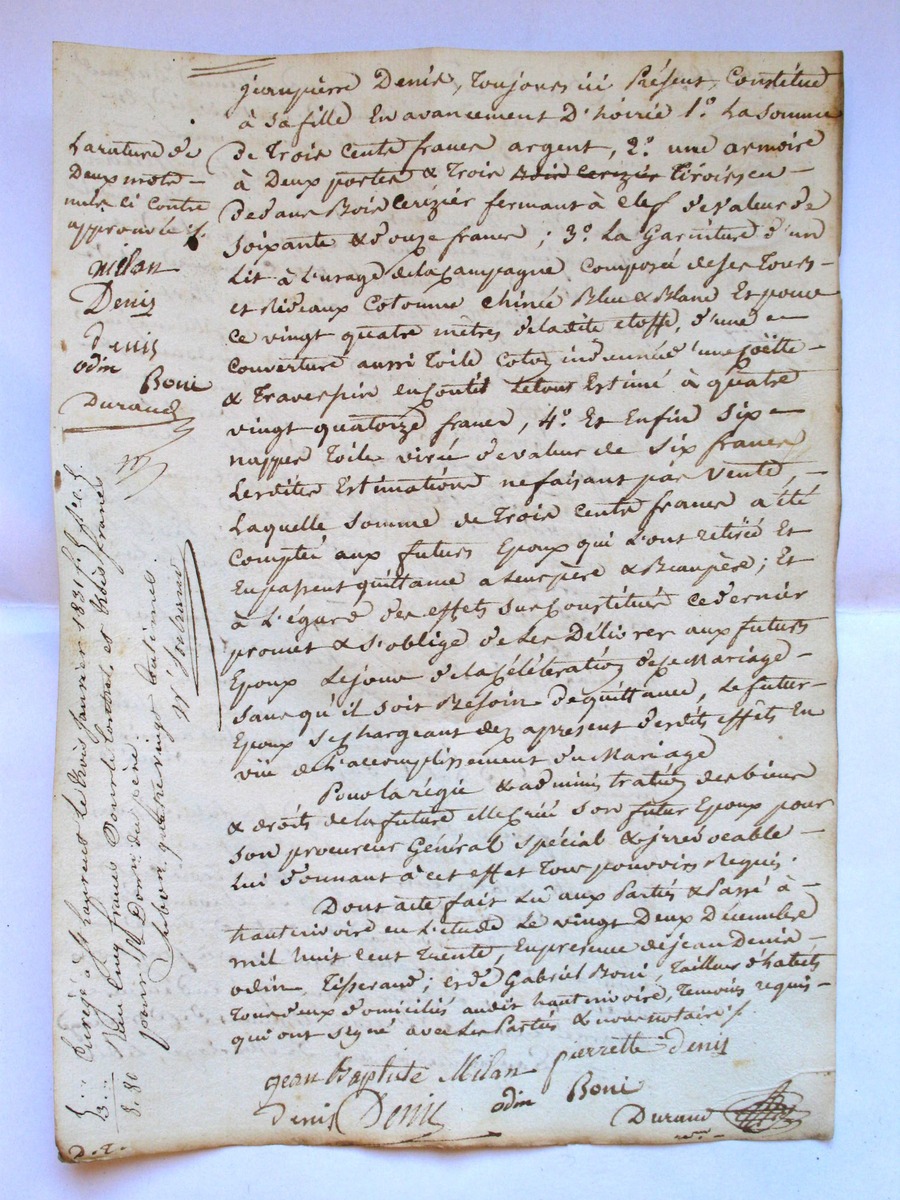 jeanpierre Denis, Toujours ici Présent, Constitue
à sa fille En avancement D'hoirie 1º La somme
de Trois Cents francs argent, 2º une armoire
à Deux portes & Trois Bois Cerizier Tiroirs en
dedans Bois Cerizier fermant à clef de valeur de
soixante & douze francs ; 3º La Garniture d'un
Lit à L'usage de la Campagne Composé de ses Tours
et Rideaux Cotonne Chinée Bleu & Blanc Et pour
ce vingt quatre mètres de ladite étoffe, d'une
couverture aussi Toile Coton
& Traverspin en Coutil Le tout Estimé à quatre
vingt quatorze francs, 4º Et Enfin Six
nappes Toile de valeur de Six francs
Lesdites Estimations ne faisant pas Vente
Laquelle somme de Trois Cents francs a été
Comptée aux futurs Epoux qui L'ont retirée Et
En passent quittance à Leur père & Beaupère ; Et
à L'égard des effets sus Constitués ce dernier
promet & s'oblige de Les Délivrer aux futurs
Epoux Le jour de la Célébration de Ce Mariage
sans qu'il soit Besoin de quittance, Le futur
Epoux se Chargeant dez apresent desdits effets En
vüe de L'accomplissement du Mariage
Pour la régie & administration des biens
& droits de la future elle Crée son futur Epoux pour
son procureur Général spécial & irrévocable
Lui donnant à cet effet Tous pouvoirs Requis.
Dont acte fait Lu aux Parties & Passé à
hautrivoire en L'étude Le vingt Deux Décembre
mil huit Cent Trente, En présence de jean Denis
odin Tisserand ; et de Gabriel Boni, Tailleur d'habits
Tous deux domiciliés audit hautrivoire, Temoins requis
qui ont signé avec Les Parties & nous notaire ./.
jean Baptiste Milan pierrette denis
denis Denis odin Boni
Durand
La rature de
Deux mots
nuls ci Contre
approuvée ./.
milan
Denis
denis
odin Boni
Durand
le trois janvier 1831
francs pour le Contrat, et trois francs
pour le Don du père.
Subon. quatre vingt centimes.
8.80
D.T.